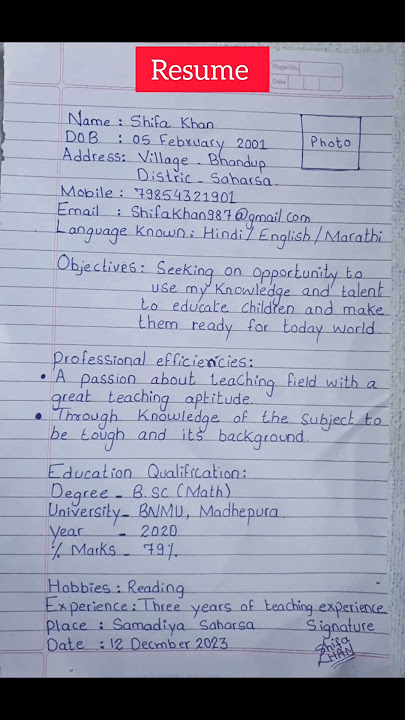 Resume
Page No.
Date
Name : Shifa Khan
DOB : 05 February 2001
Photo
Address: Village - Bhandup
Distric - Saharsa.
Mobile : 79854321901
Email : Shifakhan987@gmail.com
Language Known : Hindi / English / Marathi
Objectives: Seeking on opportunity to
use my knowledge and talent
to educate children and make
them ready for today world.
Professional efficiencies:
• A passion about teaching field with a
great teaching aptitude.
• Through Knowledge of the subject to
be tough and its background.
Education Qualification:
Degree - B.SC (Math)
University - BNMU, Madhepura.
Year - 2020
% Marks - 79%.
Hobbies : Reading
Experience: Three years of teaching experience
Place : Samadiya Saharsa. Signature
Date : 12 Decmber 2023
Shifa
KHAN